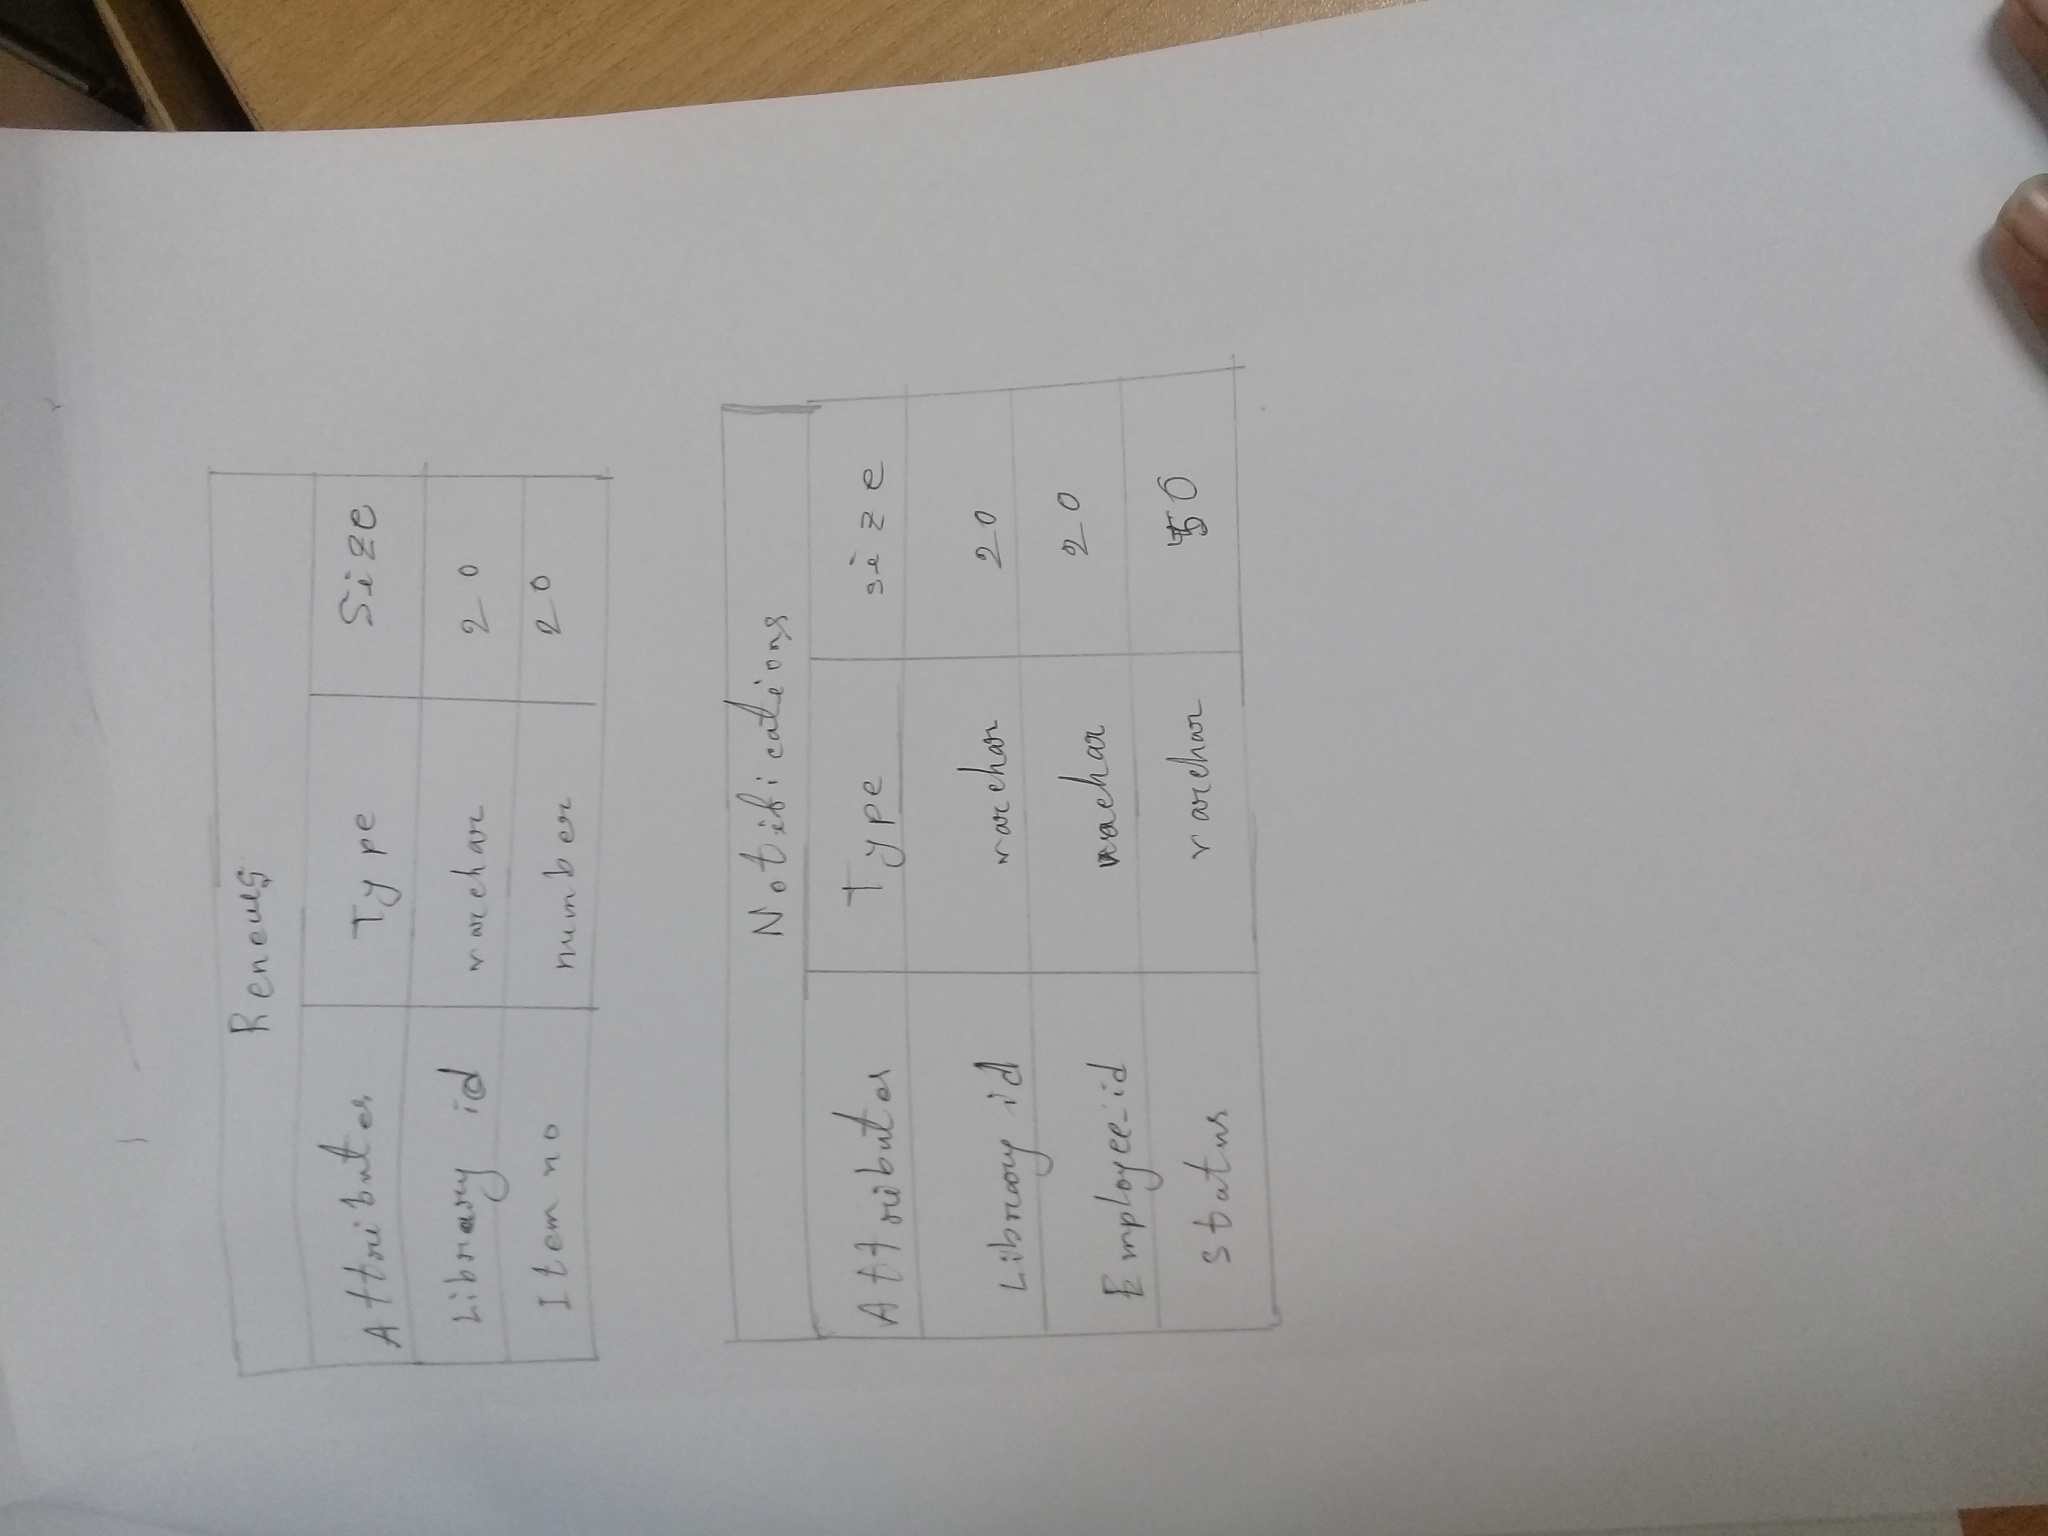 Renews
Attributes Type Size
Library id varchar 20
Item no number 20
Notifications
Attributes Type size
Library id varchar 20
Employee-id vachar 20
status varchar 50